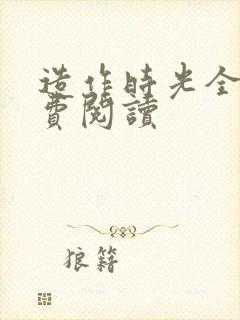 造作時光全
費閱讀
狼籍